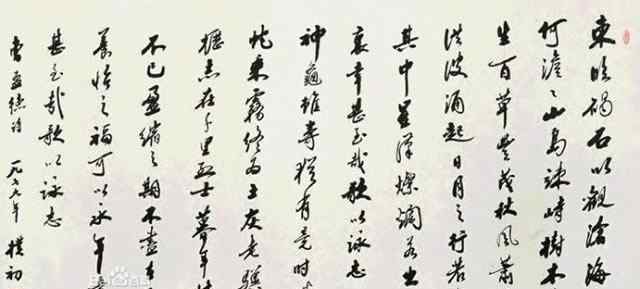 東臨碣石以觀滄海
何澹々山島竦峙樹木
生百草豐茂秋風蕭
洪波涌起日月之行若
其中星漢燦爛若出
裏幸甚至哉歌以詠志
神龜雖壽猶有竟時
蛇乘霧終為土灰老驥
櫪志在千里烈士暮年
不已盈縮之期不盡在
養怡之福可以永年
甚至哉歌以詠志
曹孟德詩 一九七 年 樸初
Bai 百科